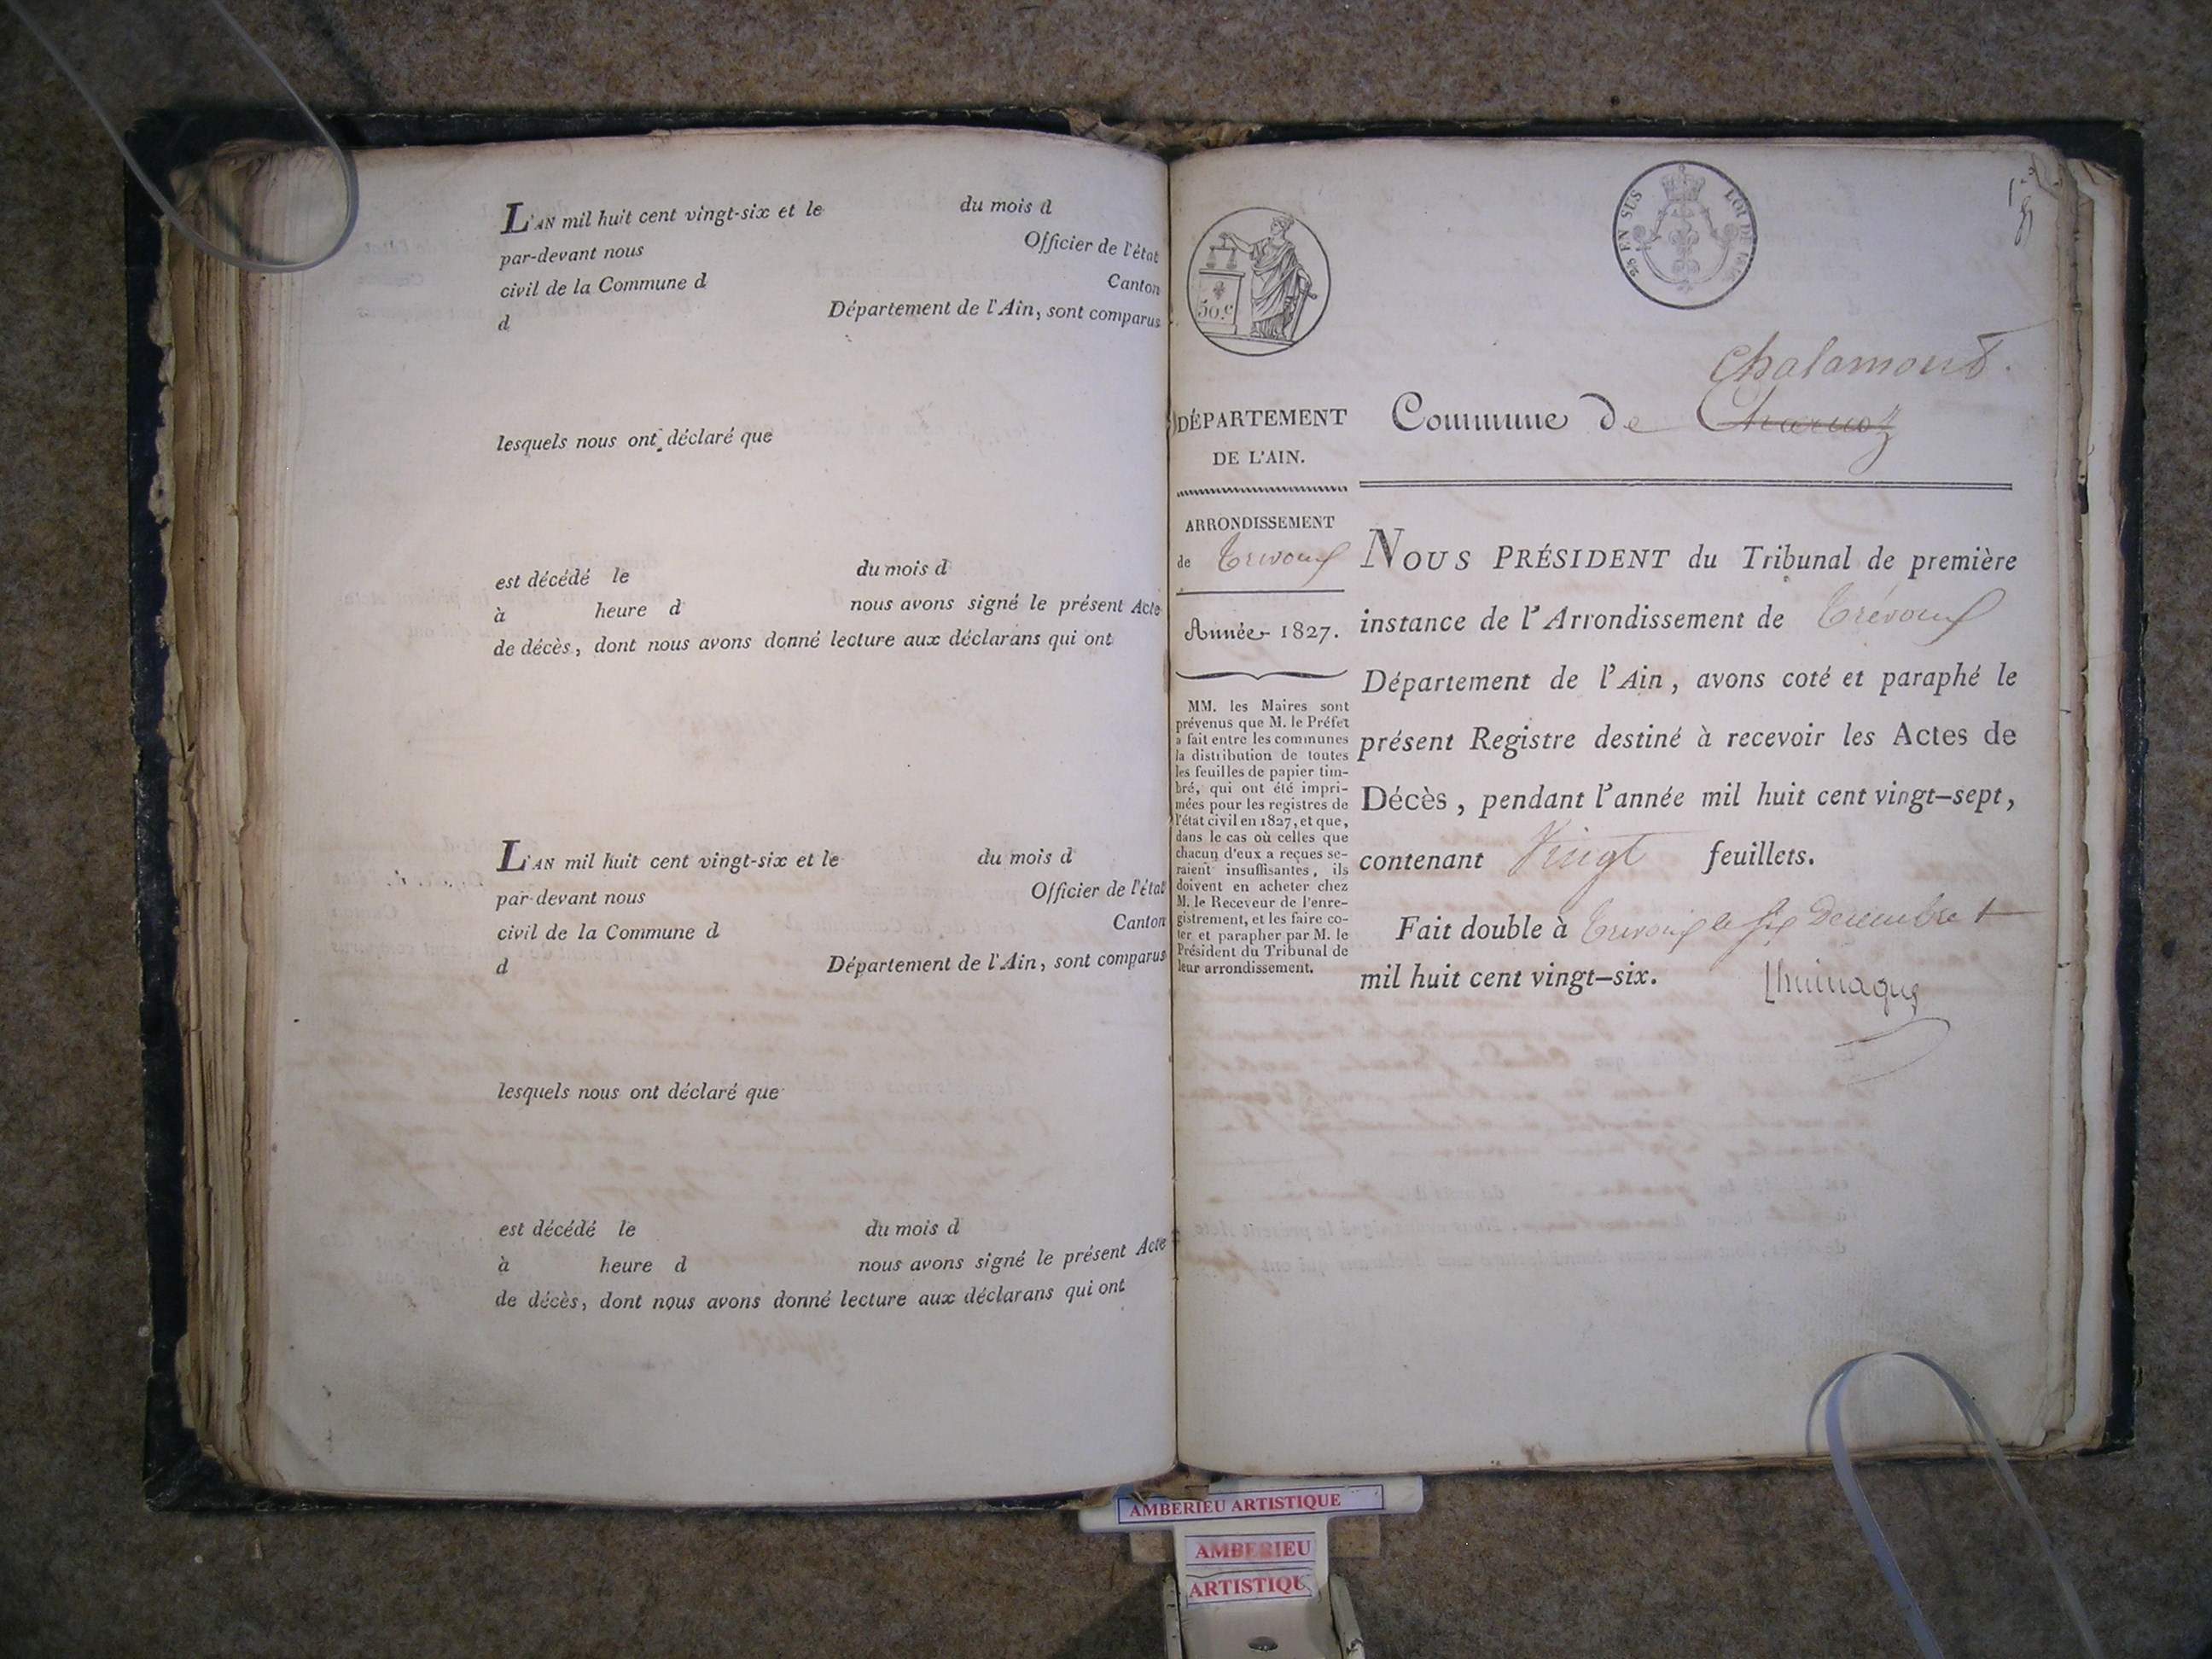 L'AN mil huit cent vingt-six et le du mois d
par-devant nous Officier de l'état
civil de la Commune d Canton
d Département de l'Ain, sont comparus
lesquels nous ont déclaré que
est décédé le du mois d
à heure d nous avons signé le présent Acte
de décès, dont nous avons donné lecture aux déclarans qui ont
L'AN mil huit cent vingt-six et le du mois d
par-devant nous Officier de l'état
civil de la Commune d Canton
d Département de l'Ain, sont comparus
lesquels nous ont déclaré que
est décédé le du mois d
à heure d nous avons signé le présent Acte
de décès, dont nous avons donné lecture aux déclarans qui ont
50.c
25 EN SUS LOI DE 1816
DÉPARTEMENT
DE L'AIN.
ARRONDISSEMENT
de Trevoux
Année 1827.
MM. les Maires sont
prévenus que M. le Préfet
a fait entre les communes
la distribution de toutes
les feuilles de papier tim-
bré, qui ont été impri-
mées pour les registres de
l'état civil en 1827, et que,
dans le cas où celles que
chacun d'eux a reçues se-
raient insuffisantes, ils
doivent en acheter chez
M. le Receveur de l'enre-
gistrement, et les faire co-
ter et parapher par M. le
Président du Tribunal de
leur arrondissement.
Chalamont.
Commune de Charnoz
NOUS PRÉSIDENT du Tribunal de première
instance de l'Arrondissement de Trévoux
Département de l'Ain, avons coté et paraphé le
présent Registre destiné à recevoir les Actes de
Décès, pendant l'année mil huit cent vingt-sept,
contenant Vingt feuillets.
Fait double à Trevoux le six Decembre
mil huit cent vingt-six.
AMBERIEU ARTISTIQUE
AMBERIEU
ARTISTIQU